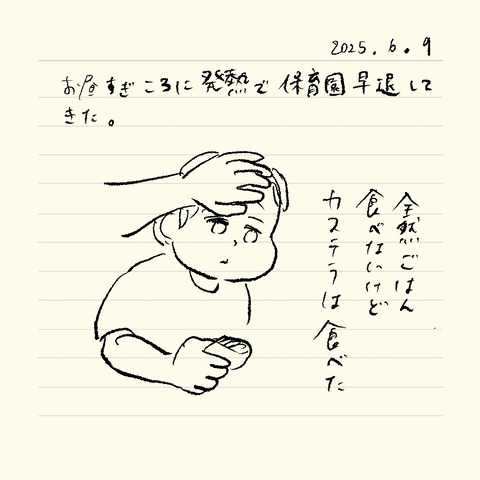 2025.6.9
お昼すぎころに発熱で保育園早退して
きた。
全然ごはん
食べないけど
カステラは食べた